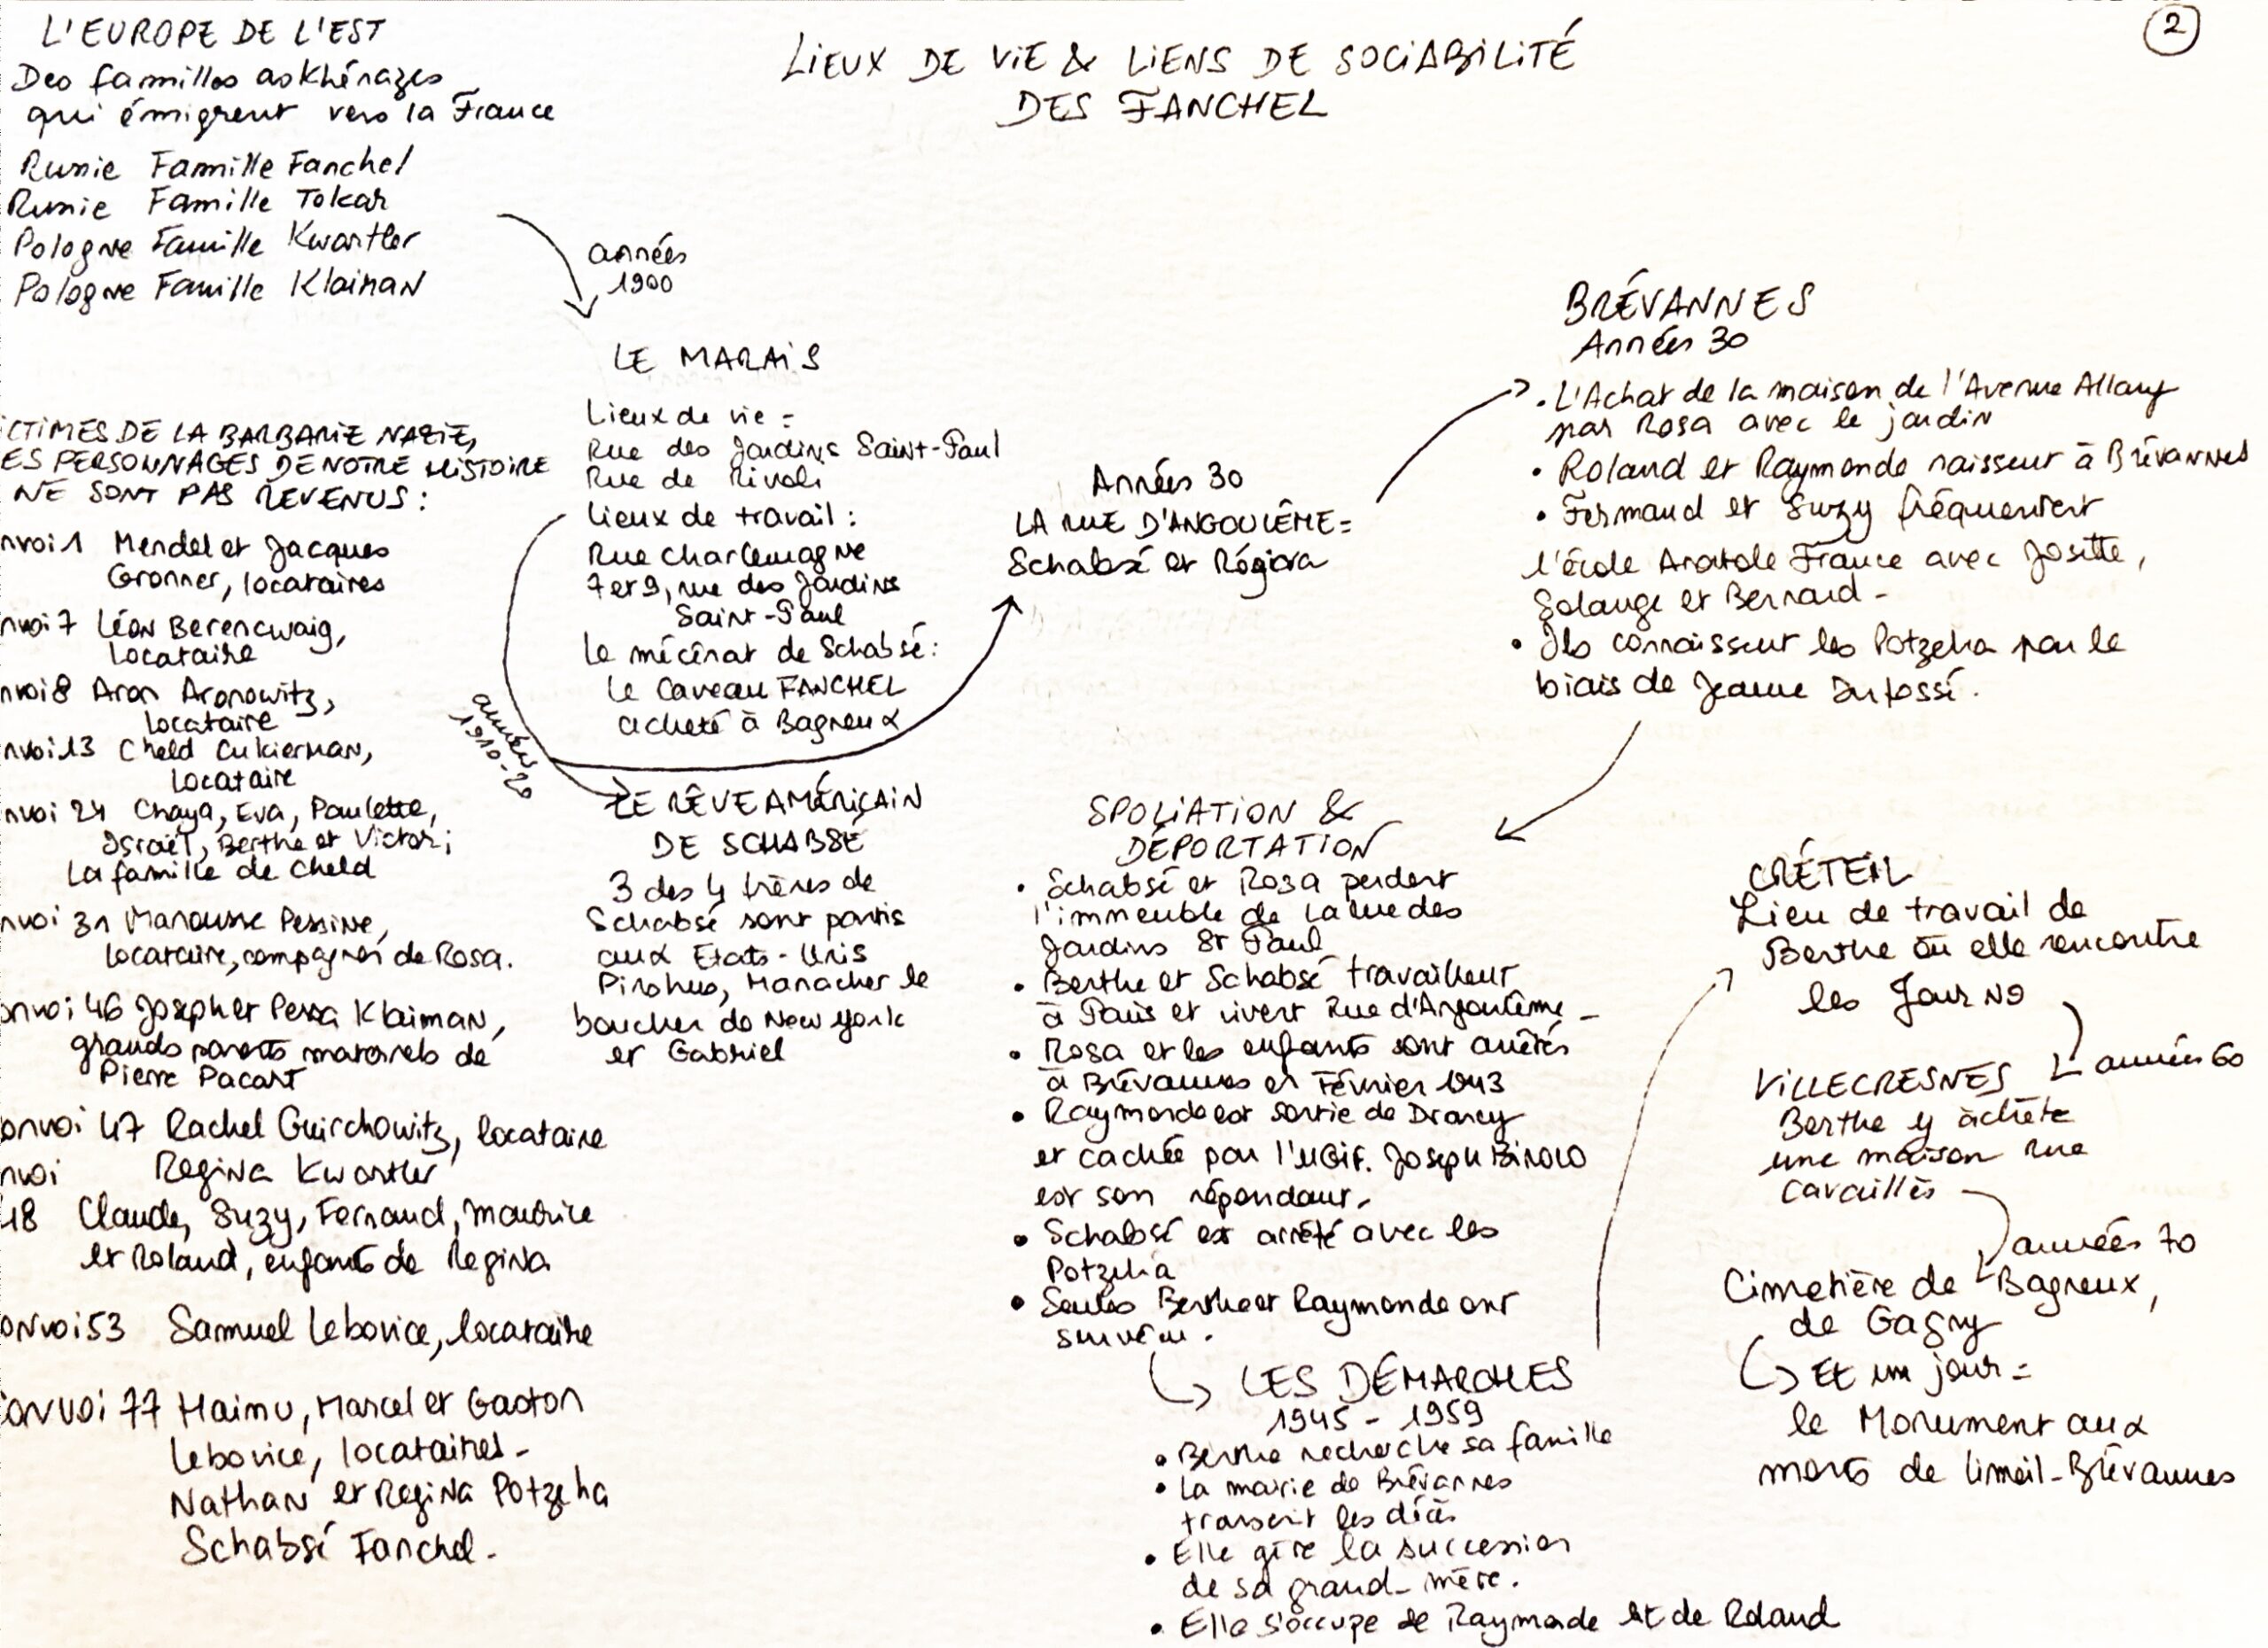 2
LIEUX DE VIE & LIENS DE SOCIABILITÉ
DES FANCHEL
L'EUROPE DE L'EST
Des familles askhénazes
qui émigrent vers la France
Russie Famille Fanchel
Russie Famille Tokar
Pologne Famille Kwartler
Pologne Famille Klaiman
années
1900
LE MARAIS
Lieux de vie =
Rue des Jardins Saint-Paul
Rue de Rivoli
Lieux de travail :
Rue Charlemagne
7 et 9, rue des Jardins
Saint-Paul
Le mécénat de Schabsé :
Le Caveau FANCHEL
acheté à Bagneux
années
1910-20
LE RÊVE AMÉRICAIN
DE SCHABSÉ
3 des 4 frères de
Schabsé sont partis
aux Etats-Unis
Pinohus, Manacher le
boucher de New York
et Gabriel
Années 30
LA RUE D'ANGOULÊME =
Schabsé et Régina
BRÉVANNES
Années 30
• L'Achat de la maison de l'Avenue Allary
par Rosa avec le jardin
• Roland et Raymonde naissent à Brévannes
• Fernand et Suzy fréquentent
l'école Anatole France avec Josette,
Solange et Bernard -
• Ils connaissent les Potzeha par le
biais de Jeanne Dufossé.
SPOLIATION &
DÉPORTATION
• Schabsé et Rosa perdent
l'immeuble de la rue des
Jardins St Paul
• Berthe et Schabsé travaillent
à Paris et vivent Rue d'Angoulême -
• Rosa et les enfants sont arrêtés
à Brévannes en Février 1943
• Raymonde est sortie de Drancy
et cachée par l'UGIF. Joseph
est son répondant.
• Schabsé est arrêté avec les
Potzeha
• Seules Berthe et Raymonde ont
survécu.
LES DÉMARCHES
1945 - 1959
• Berthe recherche sa famille
• La mairie de Brévannes
transcrit les décès
• Elle gère la succession
de sa grand-mère.
• Elle s'occupe de Raymonde et de Roland
CRÉTEIL
Lieu de travail de
Berthe où elle rencontre
les Journo
années 60
VILLECRESNES
Berthe y achète
une maison rue
Cavaillès
années 70
Cimetière de Bagneux,
de Gagny
Et un jour =
le Monument aux
morts de Limeil-Brévannes
ICTIMES DE LA BARBARIE NAZIE,
ES PERSONNAGES DE NOTRE HISTOIRE
NE SONT PAS REVENUS :
nvoi 1 Mendel et Jacques
Gronner, locataires
nvoi 7 Léon Berencwaig,
locataire
nvoi 8 Aron Aronowitz,
locataire
nvoi 13 Cheld Cukierman,
locataire
nvoi 24 Chaya, Eva, Paulette,
Israël, Berthe et Victor ;
La famille de Cheld
nvoi 31 Manousse Pessine,
locataire, compagnon de Rosa.
onvoi 46 Joseph et Pessa Klaiman,
grands parents maternels de
Pierre Pacart
onvoi 47 Rachel Guirchowitz, locataire
nvoi Regina Kwartler
48 Claude, Suzy, Fernand, Maurice
et Roland, enfants de Regina
onvoi 53 Samuel Lebovice, locataire
onvoi 77 Haimu, Marcel et Gaston
Lebovice, locataires -
Nathan et Regina Potzeha
Schabsé Fanchel -